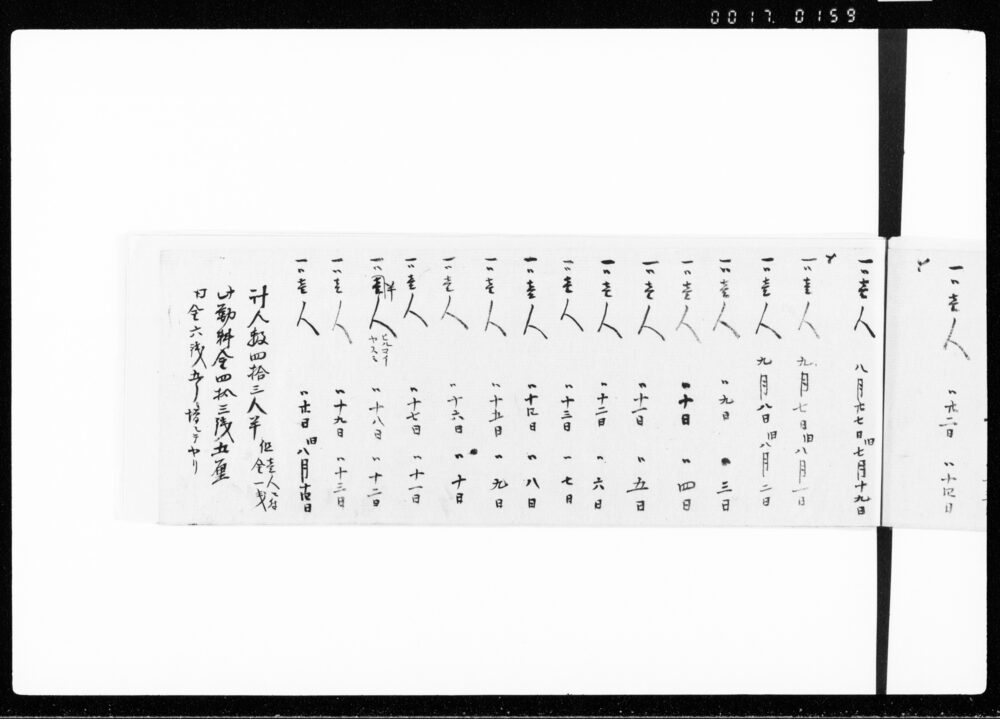 0017. 0159
一〃壱人 〃廿二日 〃十四日
一〃壱人 八月廿七日 旧七月十九日
一〃壱人 九月七日 旧八月一日
一〃壱人 九月八日 旧八月二日
一〃壱人 〃九日 〃三日
一〃壱人 〃十日 〃四日
一〃壱人 〃十一日 〃五日
一〃壱人 〃十二日 〃六日
一〃壱人 〃十三日 〃七日
一〃壱人 〃十四日 〃八日
一〃壱人 〃十五日 〃九日
一〃壱人 〃十六日 〃十日
一〃壱人 〃十七日 〃十一日
一〃半人 ヒルコイヤスミ 〃十八日 〃十二日
一〃壱人 〃十九日 〃十三日
一〃壱人 〃廿日 旧八月十四日
計人数四拾三人半 但壱人ニ付金一銭
此勤料金四拾三銭五厘
内金六銭五リ増シテヤリ